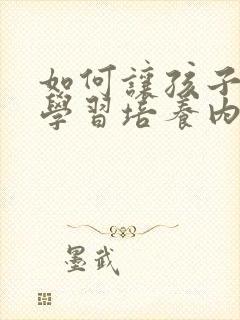 如何讓孩子
學習培養內
墨武